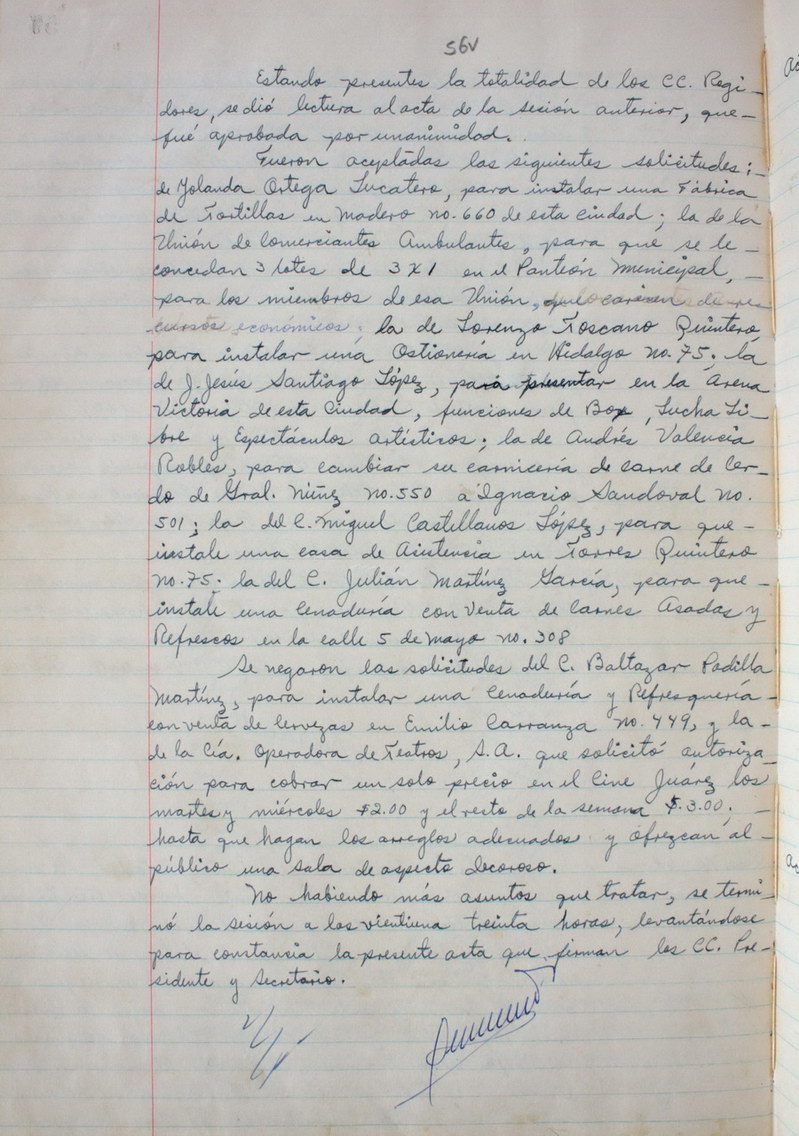 56V
Estando presentes la totalidad de los CC. Regi-
dores, se dió lectura al acta de la sesión anterior, que-
fué aprobada por unanimidad.
Fueron aceptadas las siguientes solicitudes:-
de Yolanda Ortega Lucatero, para instalar una Fábrica
de Tortillas en Madero no. 660 de esta ciudad; la de la
Unión de Comerciantes Ambulantes, para que se le-
concedan 3 lotes de 3 X 1 en el Panteón Municipal,-
para los miembros de esa Unión, que carecen de re
cursos económicos; la de Lorenzo Toscano Quintero,
para instalar una Ostionería en Hidalgo no. 75; la
de J. Jesús Santiago López, para presentar en la Arena
Victoria de esta Ciudad, funciones de Box, Lucha Li-
bre y Espectáculos artísticos; la de Andrés Valencia
Robles, para cambiar su carnicería de carne de Cer-
do de Gral. Núñez no. 550 a Ignacio Sandoval no.
501; la del C. Miguel Castellanos López, para que-
instale una casa de Asistencia en Torres Quintero
no. 75; la del C. Julián Martínez García, para que-
instale una Cenaduría con Venta de Carnes Asadas y
Refrescos en la calle 5 de Mayo no. 308
Se negaron las solicitudes del C. Baltazar Padilla
Martínez, para instalar una Cenaduría y Refresquería-
con venta de Cervezas en Emilio Carranza no. 449, y la-
de la Cía. Operadora de Teatros, S.A. que solicitó autoriza-
ción para cobrar un solo precio en el Cine Juárez los
martes y miércoles $2.00 y el resto de la semana $.3.00;-
hasta que hagan los arreglos adecuados y ofrezcan al-
público una sala de aspecto decoroso.
No habiendo más asuntos que tratar, se termi-
nó la sesión a las vientiuna treinta horas, levantándose
para constancia la presente acta que firman los CC. Pre-
sidente y Secretario.